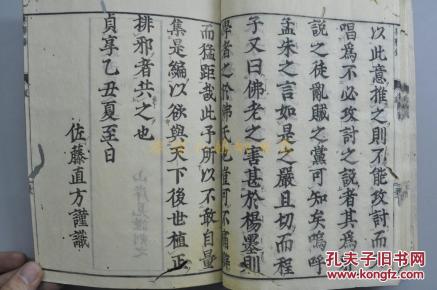 以此意推之則不能攻討而
唱爲不必攻討之說者其爲
說之徒亂賊之黨可知矣嗚呼
孟朱之言如是之嚴且切而程
子又曰佛老之害甚於楊墨則
學者之於佛氏豈可不痛
而猛距哉此予所以不敢自量
集是編以欲與天下後世植正
排邪者共之也
貞享乙丑夏至日
佐藤直方謹識
孔夫子旧书网
www.kongfz.com